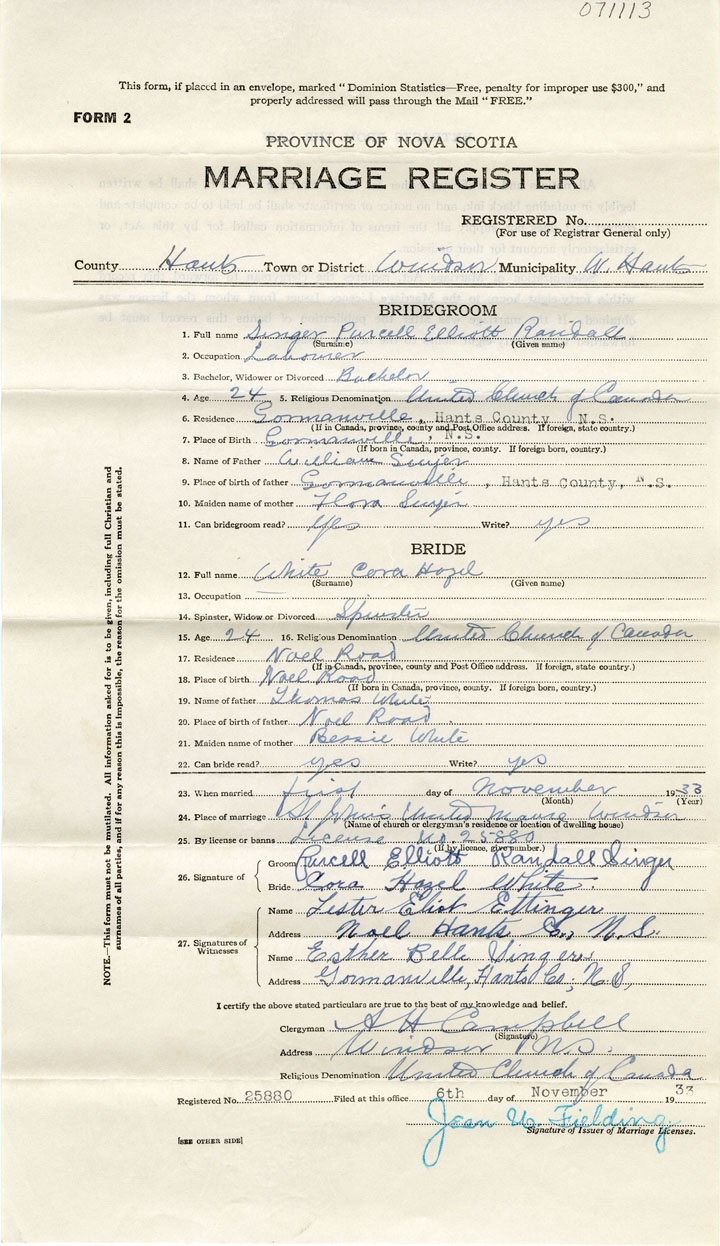 071113
This form, if placed in an envelope, marked "Dominion Statistics—Free, penalty for improper use $300," and
properly addressed will pass through the Mail "FREE."
FORM 2
PROVINCE OF NOVA SCOTIA
MARRIAGE REGISTER
REGISTERED No.
(For use of Registrar General only)
County Hants Town or District Windsor Municipality W. Hants
BRIDEGROOM
1. Full name Singer Purcell Elliott Randall
(Surname) (Given name)
2. Occupation Labourer
3. Bachelor, Widower or Divorced Bachelor
4. Age 24 5. Religious Denomination United Church of Canada
6. Residence Gormanville, Hants County N.S.
(If in Canada, province, county and Post Office address. If foreign, state country.)
7. Place of Birth Gormanville, N.S.
(If born in Canada, province, county. If foreign born, country.)
8. Name of Father William Singer
9. Place of birth of father Gormanville, Hants County, N.S.
10. Maiden name of mother Flora Singer
11. Can bridegroom read? Yes Write? yes
BRIDE
12. Full name White Cora Hazel
(Surname) (Given name)
13. Occupation
14. Spinster, Widow or Divorced Spinster
15. Age 24 16. Religious Denomination United Church of Canada
17. Residence Noel Road
(If in Canada, province, county and Post Office address. If foreign, state country.)
18. Place of birth Noel Road
(If born in Canada, province, county. If foreign born, country.)
19. Name of father Thomas White
20. Place of birth of father Noel Road
21. Maiden name of mother Bessie White
22. Can bride read? yes Write? yes
23. When married first day of November 1933
(Month) (Year)
24. Place of marriage St John's United Manse Windsor
(Name of church or clergyman's residence or location of dwelling house)
25. By license or banns License No. 25880
(If by licence, give number.)
26. Signature of
Groom Purcell Elliott Randall Singer
Bride Cora Hazel White.
27. Signatures of Witnesses
Name Lester Eliot Ettinger
Address Noel Hants Co., N.S.
Name Esther Belle Singer
Address Gormanville, Hants Co., N.S,
I certify the above stated particulars are true to the best of my knowledge and belief.
Clergyman A H Campbell
(Signature)
Address Windsor N.S.
Religious Denomination United Church of Canada
Registered No. 25880 Filed at this office 6th day of November 1933
Jean U. Fielding
Signature of Issuer of Marriage Licenses.
[SEE OTHER SIDE]
NOTE.—This form must not be mutilated. All information asked for is to be given, including full Christian and
surnames of all parties, and if for any reason this is impossible, the reason for the omission must be stated.